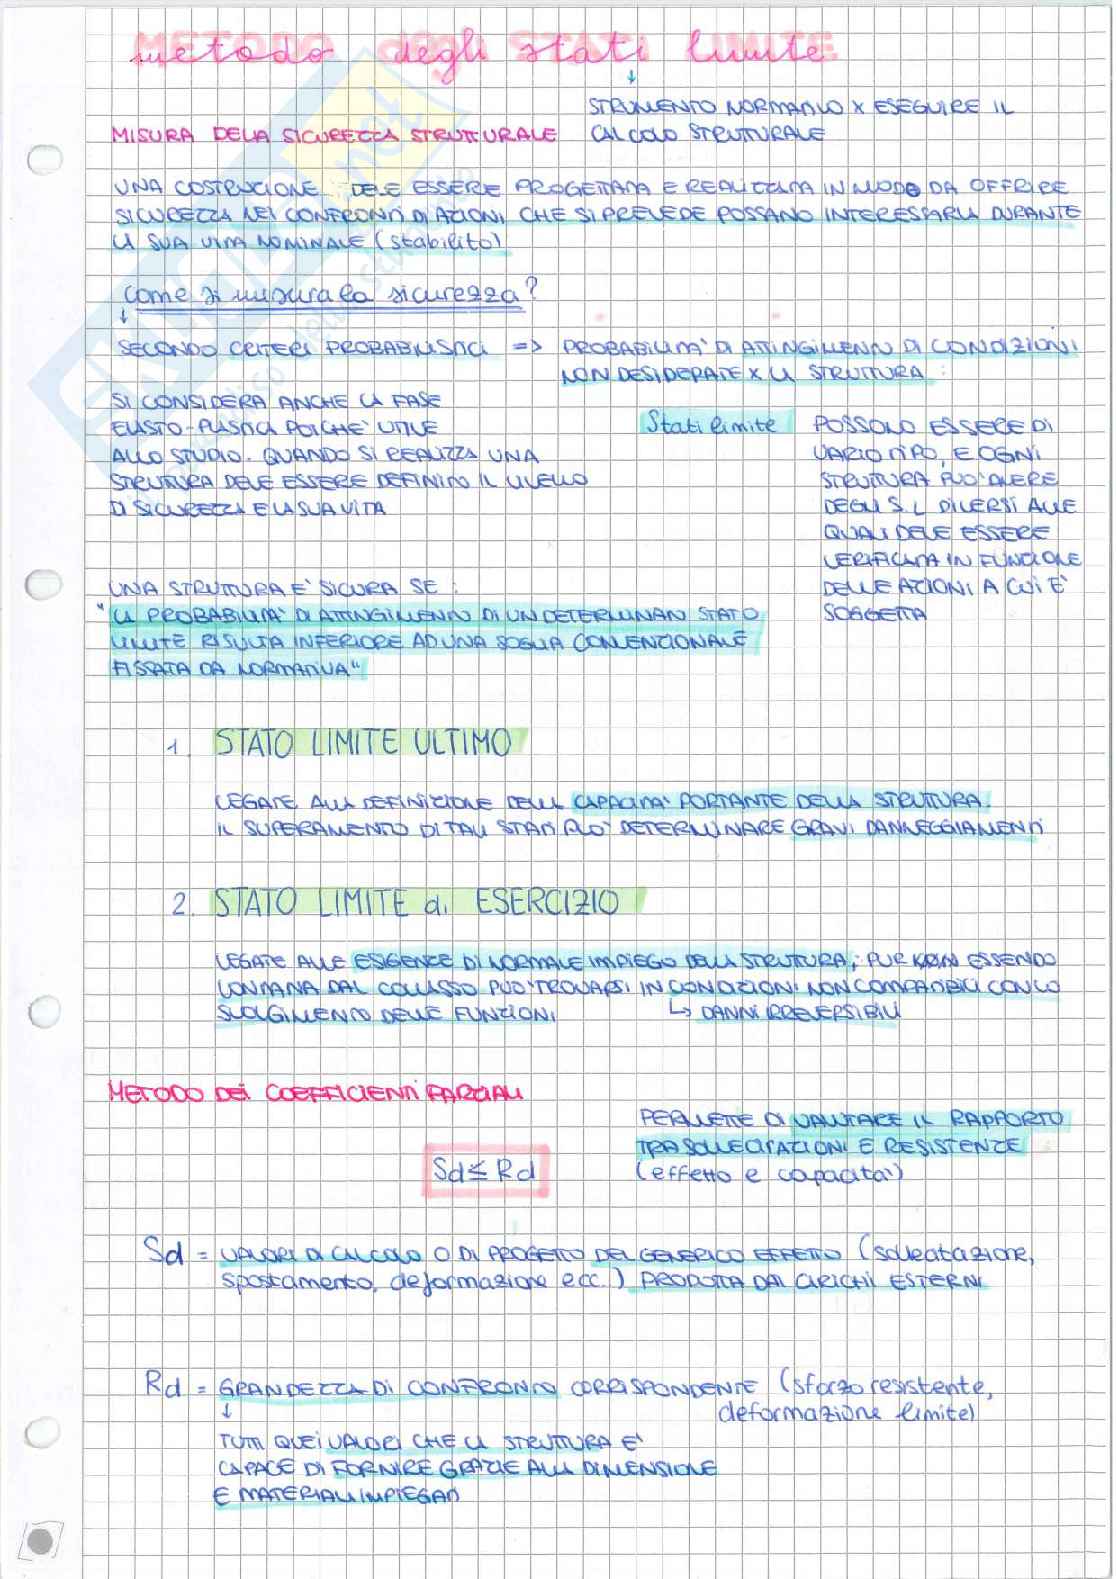 metodo degli stati limite
↓
STRUMENTO NORMATIVO x ESEGUIRE IL
CALCOLO STRUTTURALE
MISURA DELLA SICUREZZA STRUTTURALE
UNA COSTRUZIONE DEVE ESSERE PROGETTATA E REALIZZATA IN MODO DA OFFRIRE
SICUREZZA NEI CONFRONTI DI AZIONI, CHE SI PREVEDE POSSANO INTERESSARLA DURANTE
LA SUA VITA NOMINALE (stabilito)
Come si misura la sicurezza?
↓
SECONDO CRITERI PROBABILISTICI => PROBABILITA' DI ATTINGIMENTO DI CONDIZIONI
NON DESIDERATE x LA STRUTTURA :
SI CONSIDERA ANCHE LA FASE
ELASTO-PLASTICA POICHE' UTILE
ALLO STUDIO. QUANDO SI REALIZZA UNA
STRUTTURA DEVE ESSERE DEFINITO IL LIVELLO
DI SICUREZZA E LA SUA VITA
Stati limite
POSSONO ESSERE DI
VARIO TIPO, E OGNI
STRUTTURA PUO' AVERE
DEGLI S.L DIVERSI ALLE
QUALI DEVE ESSERE
VERIFICATA IN FUNZIONE
DELLE AZIONI A CUI E'
SOGGETTA
UNA STRUTTURA E' SICURA SE :
"LA PROBABILITA' DI ATTINGIMENTO DI UN DETERMINATO STATO
LIMITE RISULTA INFERIORE AD UNA SOGLIA CONVENZIONALE
FISSATA DA NORMATIVA"
1. STATO LIMITE ULTIMO
LEGATE ALLA DEFINIZIONE DELLA CAPACITA' PORTANTE DELLA STRUTTURA.
IL SUPERAMENTO DI TALI STATI PUO' DETERMINARE GRAVI DANNEGGIAMENTI
2. STATO LIMITE di ESERCIZIO
LEGATE ALLE ESIGENZE DI NORMALE IMPIEGO DELLA STRUTTURA, PUR NON ESSENDO
LONTANA DAL COLLASSO PUO' TROVARSI IN CONDIZIONI NON COMPATIBILI CON LO
SVOLGIMENTO DELLE FUNZIONI ↳ DANNI IRREVERSIBILI
METODO DEI COEFFICIENTI PARZIALI
PERMETTE DI VALUTARE IL RAPPORTO
TRA SOLLECITAZIONI E RESISTENZE
(effetto e capacita')
Sd ≤ Rd
Sd = VALORI DI CALCOLO O DI PROGETTO DEL GENERICO EFFETTO (sollecitazione,
spostamento, deformazione ecc.) PRODOTTA DAI CARICHI ESTERNI
Rd = GRANDEZZA DI CONFRONTO CORRISPONDENTE (sforzo resistente,
deformazione limite)
↓
TUTTI QUEI VALORI CHE LA STRUTTURA E'
CAPACE DI FORNIRE GRAZIE ALLA DIMENSIONE
E MATERIALI IMPIEGATI